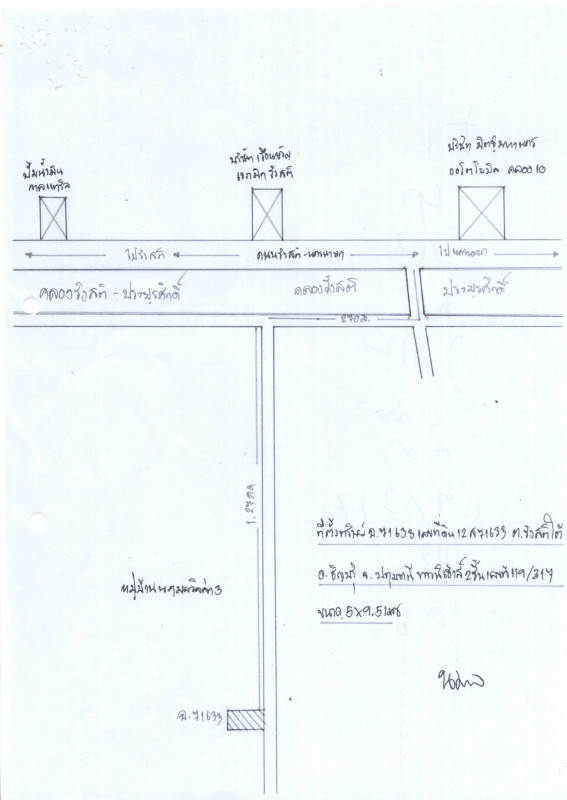 ปั๊มน้ำมัน
คาลเท็กซ์
บริษัท เรือนขวัญ
เซรามิค รังสิต
บริษัท มิตซูมหานคร
ออโตโมบิล คลอง 10
ไปรังสิต
ถนนรังสิต-นครนายก
ไปนครนายก
คลองรังสิต - ประยูรศักดิ์
คลองรังสิต
ประยูรศักดิ์
270 ม.
1.27 กม
หมู่บ้าน 3
ที่ตั้งทรัพย์ ฉ.71633 เลขที่ดิน 12 71633 ต.รังสิตใต้
อ.ธัญบุรี จ.ปทุมธานี ทาวน์เฮ้าส์ 2 ชั้น เลขที่ 119/317
ขนาด 5x9.5 เมตร
ฉ. 71633